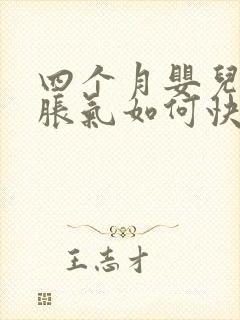 四个月嬰兒
脹氣如何快
王志才